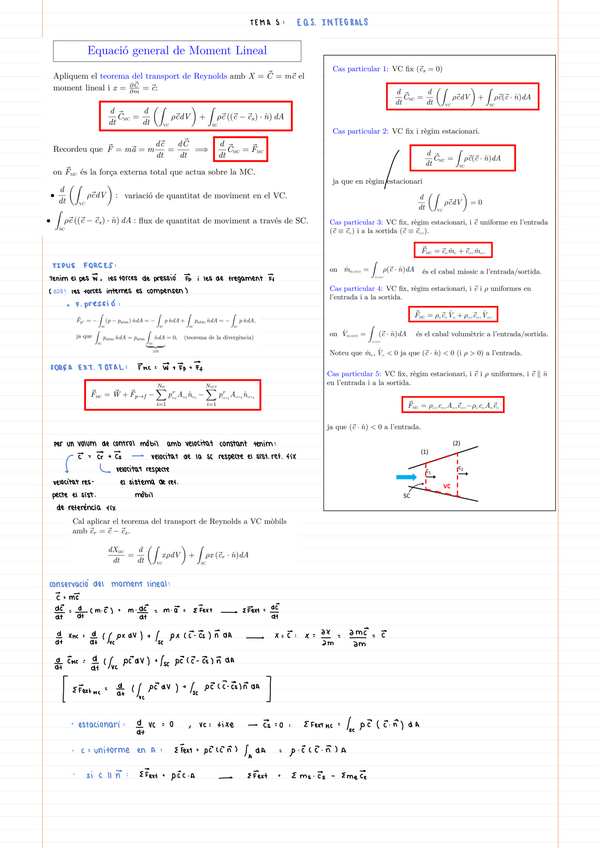 TEMA 5: EQS. INTEGRALS
Equació general de Moment Lineal
Apliquem el teorema del transport de Reynolds amb X = C⃗ = mc⃗ el
moment lineal i x = ∂C⃗/∂m = c⃗:
d/dt C⃗_MC = d/dt (∫_VC ρc⃗ dV) + ∫_SC ρc⃗ ((c⃗ − c⃗_s) · n̂) dA
Recordeu que F⃗ = ma⃗ = m dc⃗/dt = dC⃗/dt ⟹ d/dt C⃗_MC = F⃗_MC
on F⃗_MC és la força externa total que actua sobre la MC.
• d/dt (∫_VC ρc⃗dV) : variació de quantitat de moviment en el VC.
• ∫_SC ρc⃗((c⃗ − c⃗_s) · n̂) dA : flux de quantitat de moviment a través de SC.
TIPUS FORCES:
Tenim el pes W⃗, les forces de pressió F⃗p i les de fregament F⃗f
(les forces internes es compensen)
• F. pressió:
ja que (teorema de la divergència)
FORÇA EXT. TOTAL: F⃗MC = W⃗ + F⃗p + F⃗f
Per un volum de control mòbil amb velocitat constant tenim:
c⃗ = c⃗r + c⃗s → velocitat de la SC respecte el sist. ref. fix
velocitat respecte
velocitat res- el sistema de ref.
pecte el sist. mòbil
de referència fix
Cal aplicar el teorema del transport de Reynolds a VC mòbils
amb c⃗_r = c⃗ − c⃗_s.
dX_MC/dt = d/dt (∫_VC xρdV) + ∫_SC ρx (c⃗_r · n̂) dA
conservació del moment lineal:
C⃗ = mc⃗
dC⃗/dt = d/dt (m·c⃗) = m· dc⃗/dt = m·a⃗ = ΣF⃗ext → ΣF⃗ext = dC⃗/dt
d/dt X_MC = d/dt (∫_VC ρx dV) + ∫_SC ρx (c⃗-c⃗s) n⃗ dA → X = C⃗ : x = ∂X/∂m = ∂mc⃗/∂m = c⃗
d/dt C⃗_MC = d/dt (∫_VC ρc⃗ dV) + ∫_SC ρc⃗ (c⃗-c⃗s) n⃗ dA
[ΣF⃗ext MC = d/dt (∫_VC ρc⃗ dV) + ∫_SC ρc⃗ (c⃗-c⃗s) n⃗ dA]
· estacionari: d/dt VC = 0 , VC: fixe → c⃗s = 0 : ΣF⃗ext MC = ∫_SC ρc⃗ (c⃗·n⃗) dA
· c = uniforme en A: ΣF⃗ext = ρc⃗ (c⃗ n⃗) ∫_A dA = ρ·c⃗ (c⃗·n⃗) A
· si c ∥ n⃗ : ΣF⃗ext = ρc⃗c·A → ΣF⃗ext = Σ ms·c⃗s − Σme c⃗e
Cas particular 1: VC fix (c⃗_s = 0)
d/dt C⃗_MC = d/dt (∫_VC ρc⃗dV) + ∫_SC ρc⃗(c⃗ · n̂) dA
Cas particular 2: VC fix i règim estacionari.
d/dt C⃗_MC = ∫_SC ρc⃗(c⃗ · n̂) dA
ja que en règim estacionari
d/dt (∫_VC ρc⃗dV) = 0
Cas particular 3: VC fix, règim estacionari, i c⃗ uniforme en l'entrada
i a la sortida
és el cabal màssic a l'entrada/sortida.
Cas particular 4: VC fix, règim estacionari, i c⃗ i ρ uniformes en
l'entrada i a la sortida.
és el cabal volumètric a l'entrada/sortida.
Noteu que ja que (c⃗ · n̂) < 0 (i ρ > 0) a l'entrada.
Cas particular 5: VC fix, règim estacionari, i c⃗ i ρ uniformes, i c⃗ ∥ n̂
en l'entrada i a la sortida.
ja que (c⃗ · n̂) < 0 a l'entrada.
(2)
(1)
c₁
c₂
VC
SC